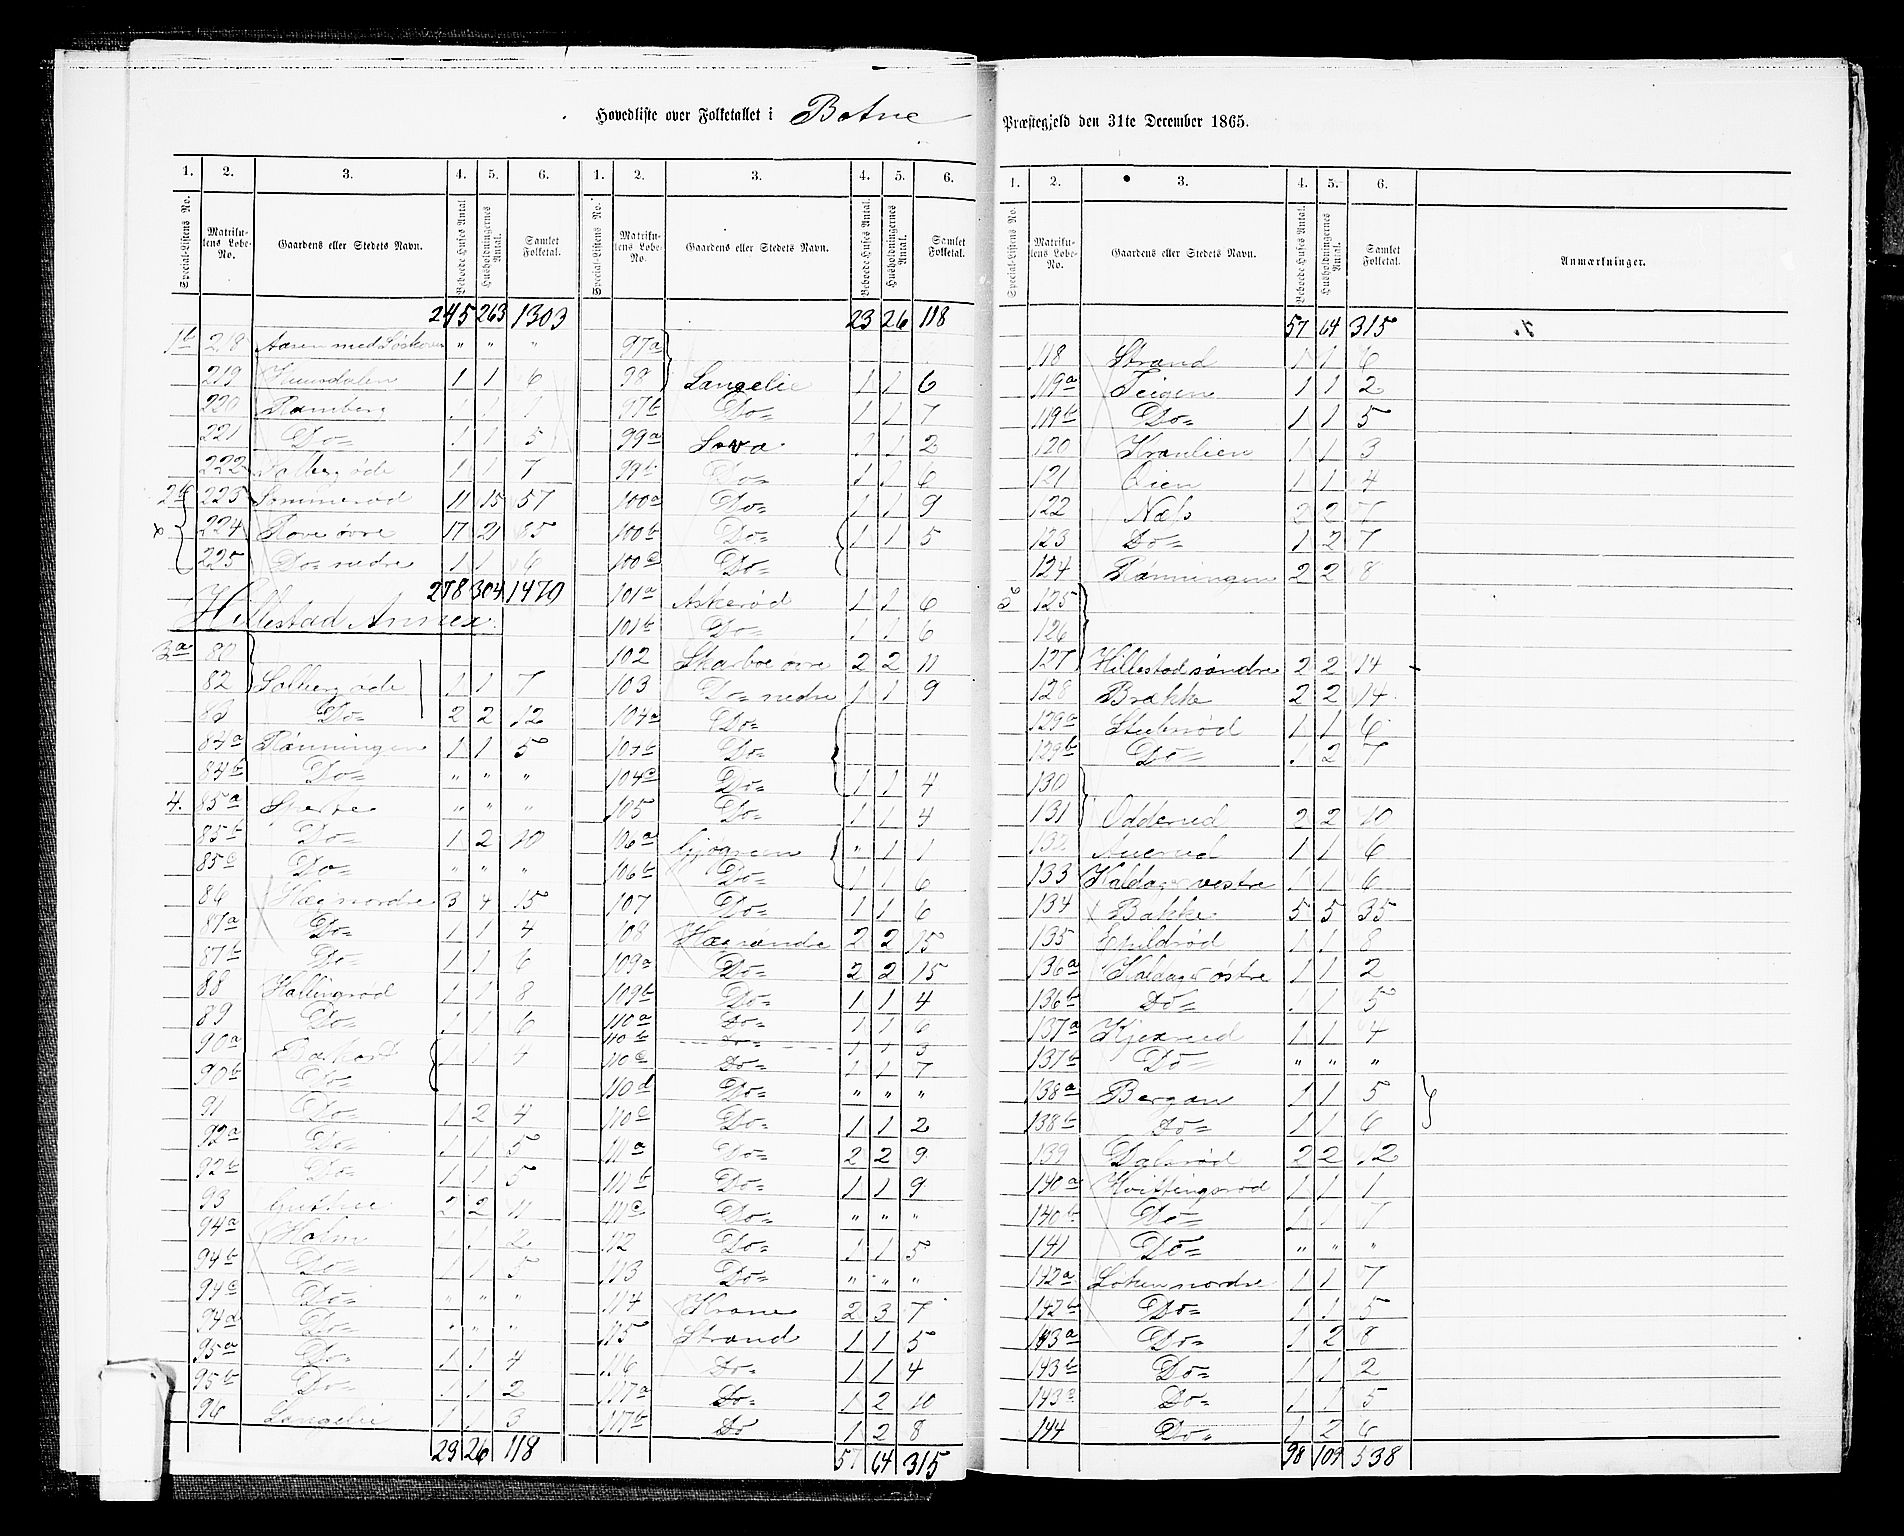 Hovedliste over Folketallet i Botne Præstegjeld den 31te December 1865.
1. 2. 3. 4. 5. 6. 1. 2. 3. 4. 5. 6.
Special-Listens No. Matrikulens Løbe-No. Gaardens eller Stedets Navn. Beboede Huses Antal Husholdningernes Antal. Samlet Folketal. Special-Listens No. Matrikulens Løbe-No. Gaardens eller Stedets Navn. Beboede Huses Antal. Husholdningernes Antal. Samlet Folketal.
245 263 1303
1b 218 Aasen med " " "
219 1 1 6
220 Ramberg 1 1 1
221 Do= 1 1 5
222 Solbergøde 1 1 7
2b 223 Sommerød 11 15 57
224 Hove øvre 17 21 85
225 Do= nedre 1 1 6
278 304 1470
Hillestad Annex.
3a 80
82 Solbergøde 1 1 7
83 Do= 2 2 12
84a Rønningen 1 1 5
84b Do= " " "
4. 85a " " "
85b Do= 1 2 10
85c Do= " " "
86 Hæg nordre 3 4 15
87a Do= 1 1 4
87b Do= 1 1 6
88 Hallingrød 1 1 8
89 Do= 1 1 6
90a 1 1 4
90b Do=
91 Do= 1 2 4
92a Do= 1 1 5
92b Do= 1 1 5
93 2 2 11
94a Holm 1 1 2
94b Do= 1 1 5
94c Do= " " "
94d Do= " " "
95a Do= 1 1 4
95b Do= 1 1 2
96 Langelie 1 1 3
23 26 118
23 26 118
97a
98 Langelie 1 1 6
97b Do= 1 1 7
99a Sova 1 1 2
99b Do= 1 1 6
100a Do= 1 1 9
100b Do= 1 1 5
100c Do=
101a Askerød 1 1 6
101b Do= 1 1 6
102 Skarboe øvre 2 2 11
103 Do= nedre 1 1 9
104a Do=
104b Do=
104c Do= 1 1 4
105 Do= 1 1 4
106a " 1 1
106b Do= 1 1 6
107 Do= 1 1 6
108 Hæg søndre 2 2 15
109a Do= 2 2 15
109b Do= 1 1 4
110a Do= 1 1 6
110b Do= 1 1 3
110c Do= 1 1 7
110d Do= " " "
110e Do= 1 1 2
111a Do= 2 2 9
111b Do= 1 1 9
111c Do= " " "
112 Do= 1 1 5
113 Do= " " "
114 Krane 2 3 7
115 Strand 1 1 5
116 Do= 1 1 4
117a Do= 1 2 10
117b Do 1 2 8
57 64 315
1. 2. 3. 4. 5. 6.
Special-Listens No. Matrikulens Løbe-No. Gaardens eller Stedets Navn. Beboede Huses Antal. Husholdningernes Antal. Samlet Folketal. Anmærkninger.
57 64 315
118 Strand 1 1 6
119a Teigen 1 1 2
119b Do= 1 1 5
120 Kranlien 1 1 3
121 Oien 1 1 4
122 Næs 2 2 7
123 Do= 1 2 7
124 Rønningen 2 2 8
125
126
127 Hillestad søndre 2 2 14
128 Brække 2 2 14
129a Stubsrød 1 1 6
129b Do= 1 2 7
130
131 Odderud 2 2 10
132 1 1 6
133 Haldager vestre 1 1 6
134 Bakke 5 5 35
135 Eskildrød 1 1 8
136a Haldager østre 1 1 2
136b Do= 1 1 5
137a Kjexrud 1 1 4
137b Do= " " "
138a Bergan 1 1 5
138b Do= 1 1 6
139 Dalsrød 2 2 12
140a Kvittingsrød 1 1 1
140b Do= 1 1 7
141 Do= " " "
142a Løken nordre 1 1 7
142b Do= 1 1 5
143a Do= 1 2 8
143b Do= 1 1 2
143c Do= 1 1 5
144 Do= 1 2 6
98 109 538